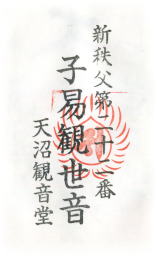 新秩父第二十二番
子易観世音
天沼観音堂